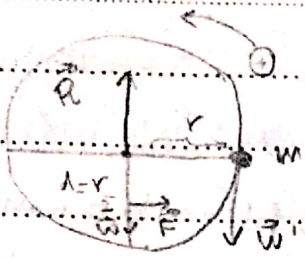 +
R⃗
r
m
λ=r
W⃗ F⃗
W⃗'